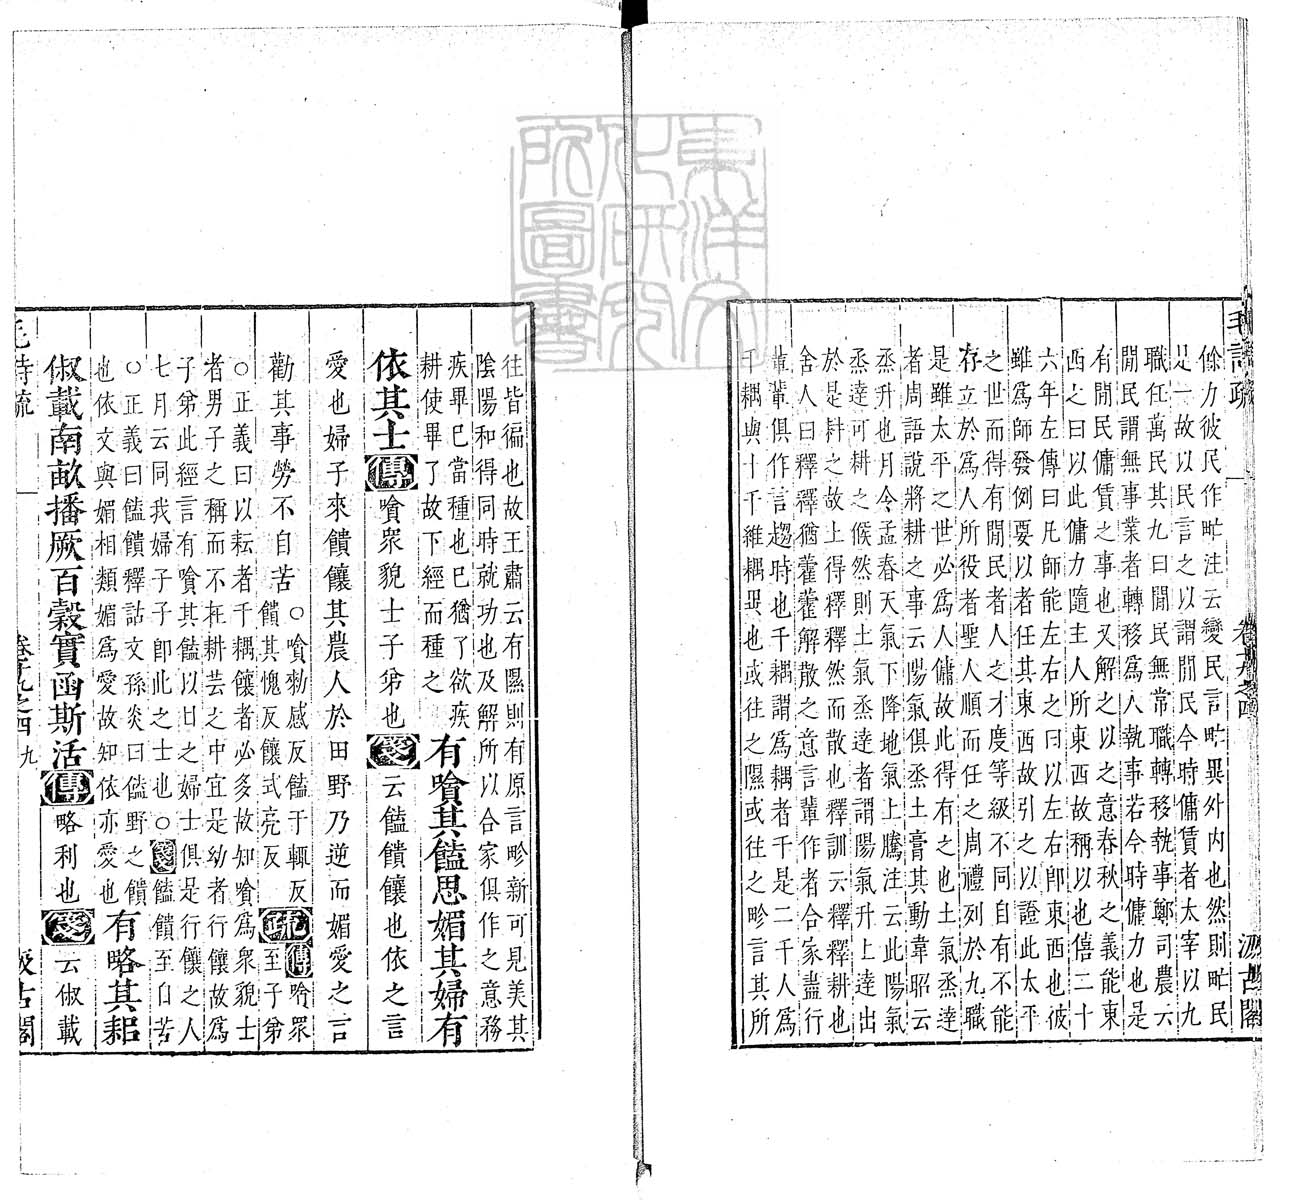 毛詩疏
卷十九之四
汲古閣
餘力彼民作甿注云變民言甿異外内也然則甿民
是一故以民言之以謂閒民今時傭賃者太宰以九
職任萬民其九曰閒民無常職轉移執事鄭司農云
閒民謂無事業者轉移爲人執事若今時傭力也是
有閒民傭賃之事也又解之以之意春秋之義能東
西之曰以此傭力隨主人所東西故稱以也僖二十
六年左傳曰凡師能左右之曰以左右卽東西也彼
雖爲師發例要以者任其東西故引之以證此太平
之世而得有閒民者人之才度等級不同自有不能
存立於爲人所役者聖人順而任之周禮列於九職
是雖太平之世必爲人傭故此得有之也土氣烝達
者周語說將耕之事云陽氣俱烝土膏其動韋昭云
烝升也月令孟春天氣下降地氣上騰注云此陽氣
烝達可耕之候然則土氣烝達者謂陽氣升上達出
於是耕之故上得釋釋然而散也釋訓云釋釋耕也
舍人曰釋釋猶藿藿解散之意言輩作者合家盡行
輩輩俱作言趨時也千耦謂爲耦者千是二千人爲
千耦與十千維耦異也或往之隰或往之畛言其所
往皆徧也故王肅云有隰則有原言畛新可見美其
陰陽和得同時就功也及解所以合家俱作之意務
疾畢已當種也已猶了欲疾
耕使畢了故下經而種之
有嗿其饁思媚其婦有
依其士傳嗿衆貌士子弟也箋云饁饋饟也依之言
愛也婦子來饋饟其農人於田野乃逆而媚愛之言
勸其事勞不自苦
○嗿勑感反饁于輒反
饋其愧反饟式亮反
疏傳嗿衆
至子弟
○正義曰以耘者千耦饟者必多故知嗿爲衆貌士
者男子之稱而不在耕芸之中宜是幼者行饟故爲
子弟此經言有嗿其饁以曰之婦士俱是行饟之人
七月云同我婦子子卽此之士也○箋饁饋至自苦
○正義曰饁饋釋詁文孫炎曰饁野之饋
也依文與媚相類媚爲愛故知依亦愛也
有略其耜
俶載南畝播厥百穀實函斯活傳略利也箋云俶載
毛詩疏
卷十九之四
九
汲古閣
東洋文
化研究
所圖書